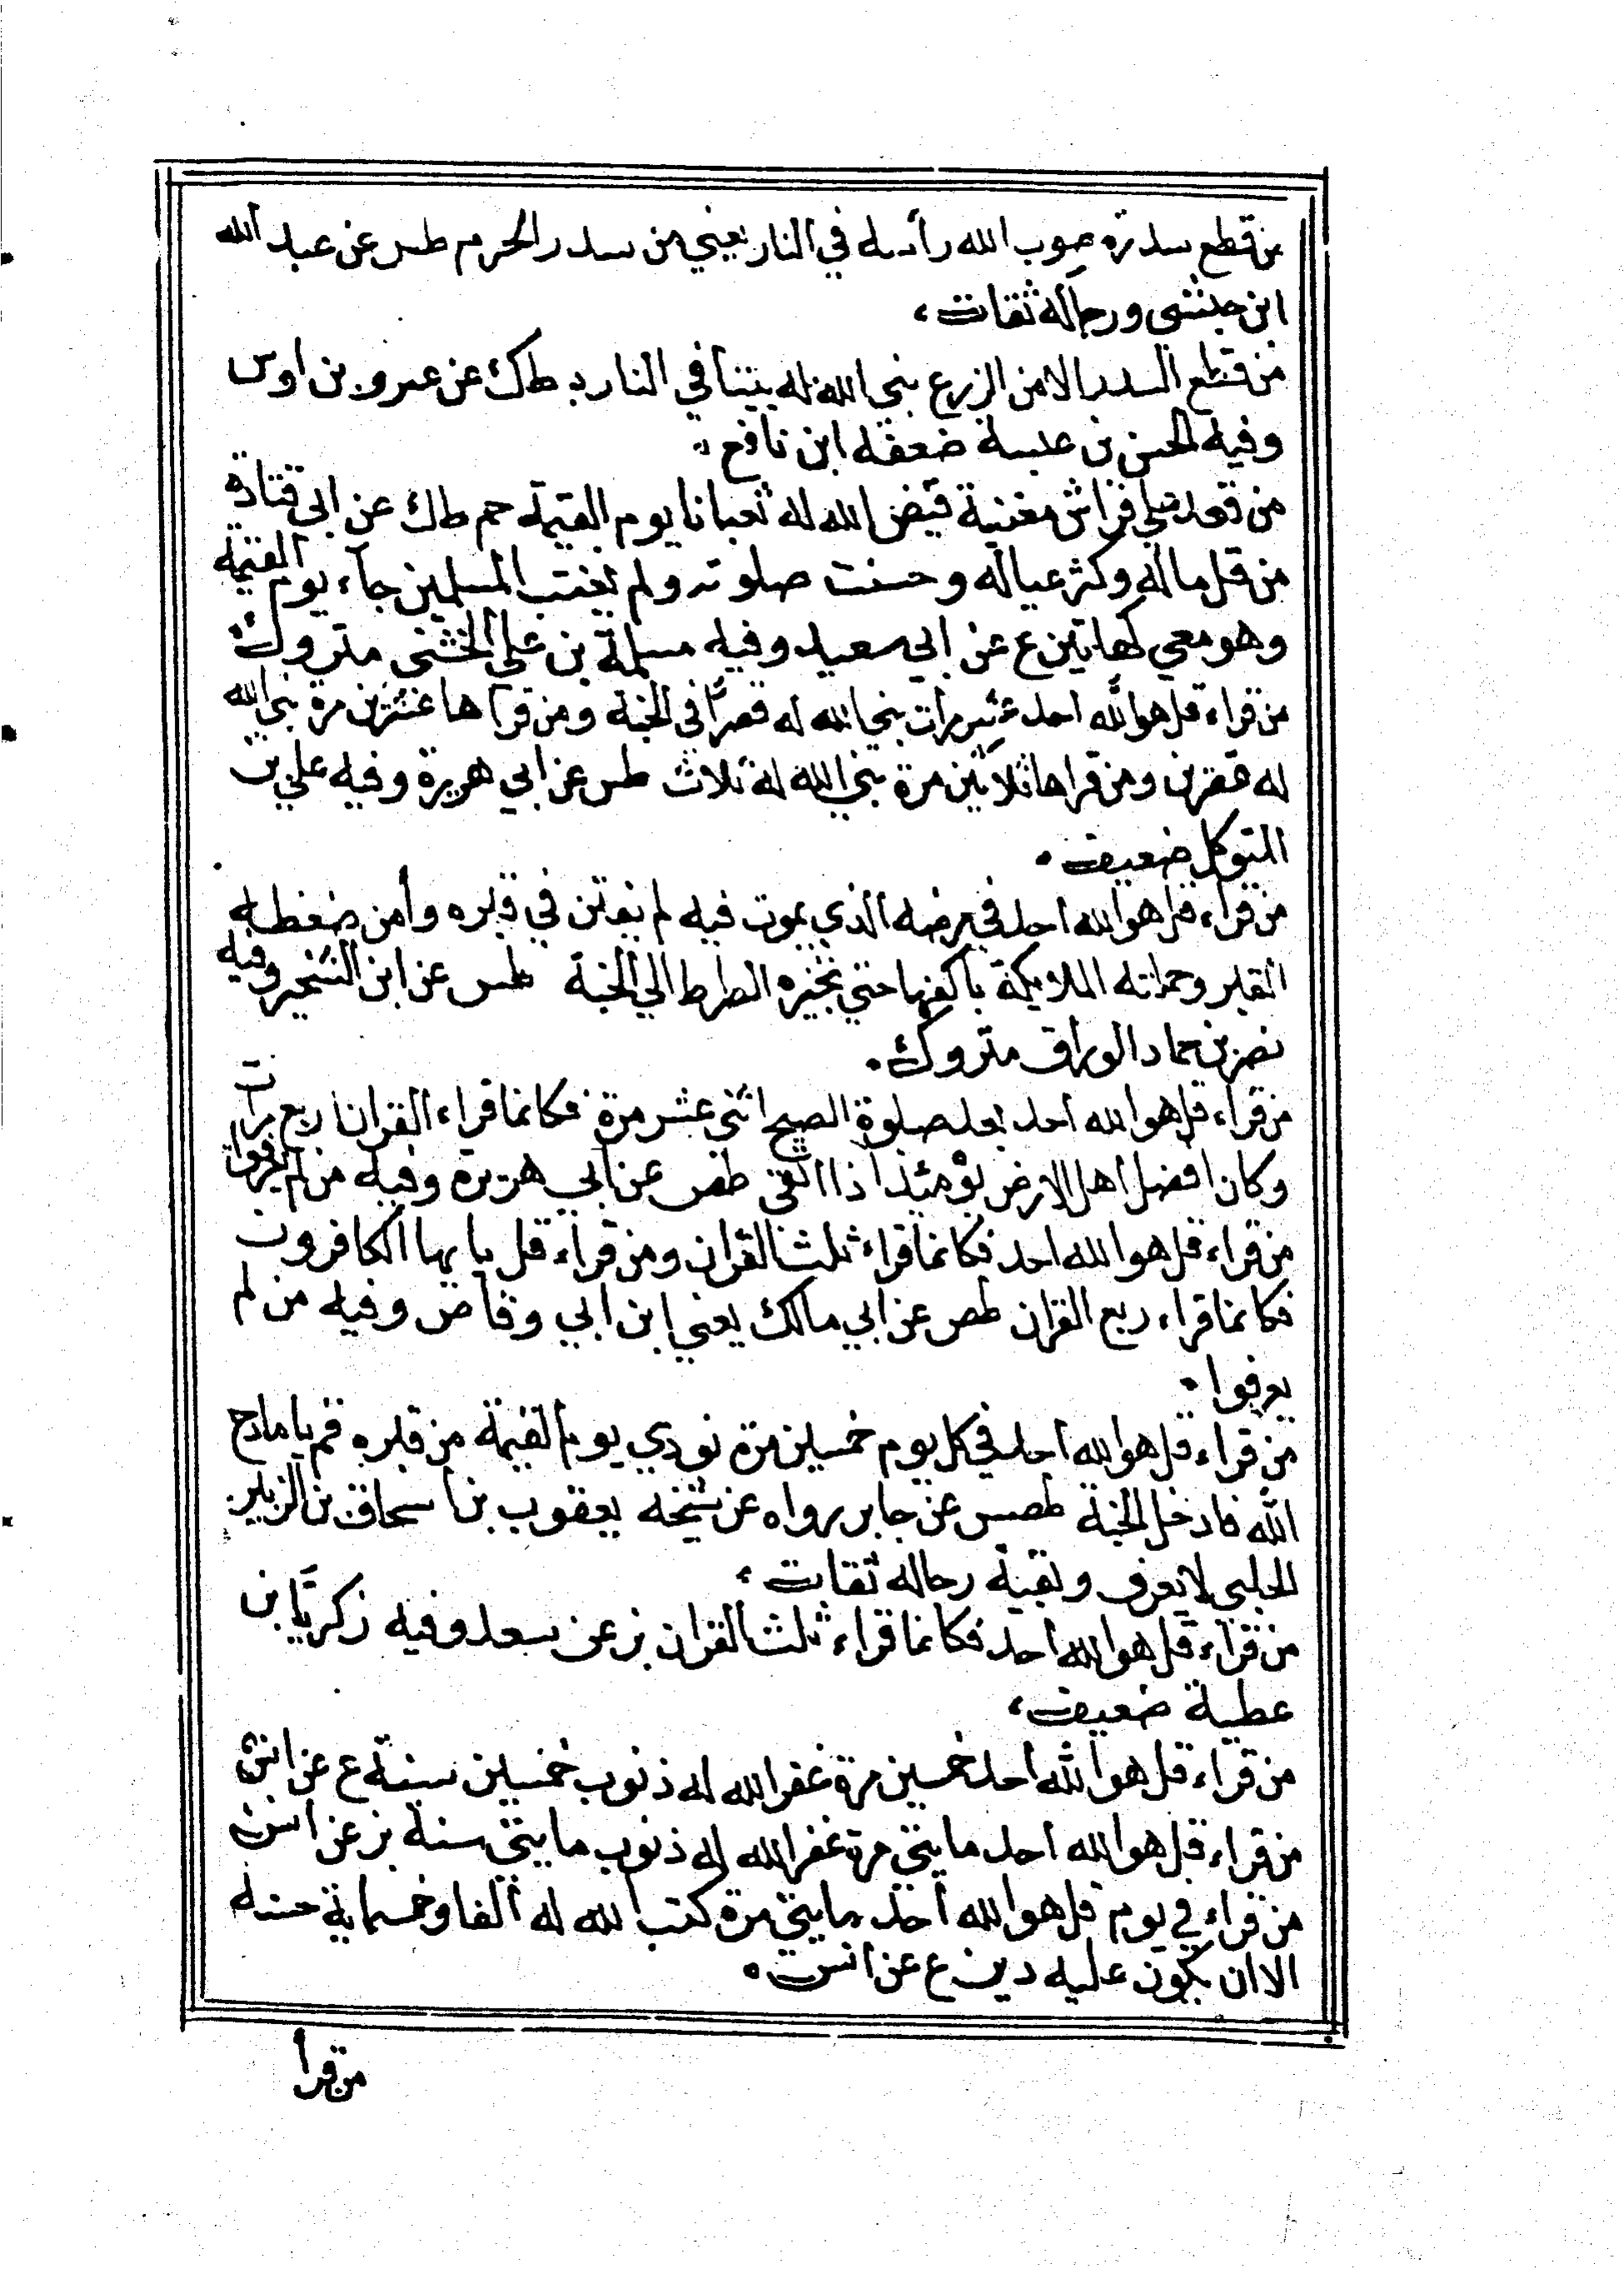 من قطع سدرة صوب الله رأسه في النار يعني من سدر الحرم طس عن عبد الله
ابن حبشي ورجاله ثقات،
من قطع السدر الا من الزرع بني الله له بيتا في النار طك عن عمرو بن اوس
وفيه الحسن بن عنبسة ضعفه ابن نافع
من قعد علي فراش مغنية قيض الله له ثعبانا يوم القيمة حم طك عن ابي قتادة
من قل ماله وكثر عياله وحسنت صلوته ولم يغتب المسلمين جاء يوم القيمة
وهو معي كهاتين ع عن ابي سعيد وفيه مسلمة بن علي الخشني متروك
من قراء قل هو الله احد عشر مرات بني الله له قصرا في الجنة ومن قراها عشرين مرة بني الله
له قصرين ومن قراها ثلاثين مرة بني الله له ثلاث طس عن ابي هريرة وفيه علي بن
المتوكل ضعيف.
من قراء قل هو الله احد في مرضه الذي يموت فيه لم يفتن في قبره وأمن ضغطه
القبر وحملته الملايكة باكفها حتي تجيزه الطرط الي الجنة طس عن ابن الشخير وفيه
نصر بن حماد الوراق متروك.
من قراء قل هو الله احد بعد صلوة الصبح اثني عشر مرة فكانما قراء القران اربع مرات
وكان افضل اهل الارض يومئذ اذا اتقي طص عن ابي هريره وفيه من لم يعرفوا
من قراء قل هو الله احد فكانما قراء ثلث القران ومن قراء قل يا يها الكافرون
فكانما قراء ربع القران طص عن ابي مالك يعني ابن ابي وقاص وفيه من لم
يعرفوا.
من قراء قل هو الله احد في كل يوم خمسين مرة نودي يوم القيمة من قبره قم يا مادح
الله فادخل الجنة طصس عن جابر رواه عن شيخه يعقوب بن اسحاق بن الزبير
الحلبي لا يعرف وبقية رجاله ثقات،
من قراء قل هو الله احد فكانما قراء ثلث القران بز عن سعد وفيه زكريا بن
عطية ضعيف،
من قراء قل هو الله احد خمسين مرة غفر الله له ذنوب خمسين سنة ع عن انس
من قراء قل هو الله احد مايتي مرة غفر الله له ذنوب مايتي سنة بز عن انس
من قراء في يوم قل هو الله احد مايتي مرة كتب الله له الفا وخمسماية حسنة
الا ان يكون عليه دين ع عن انس.
من قرأ